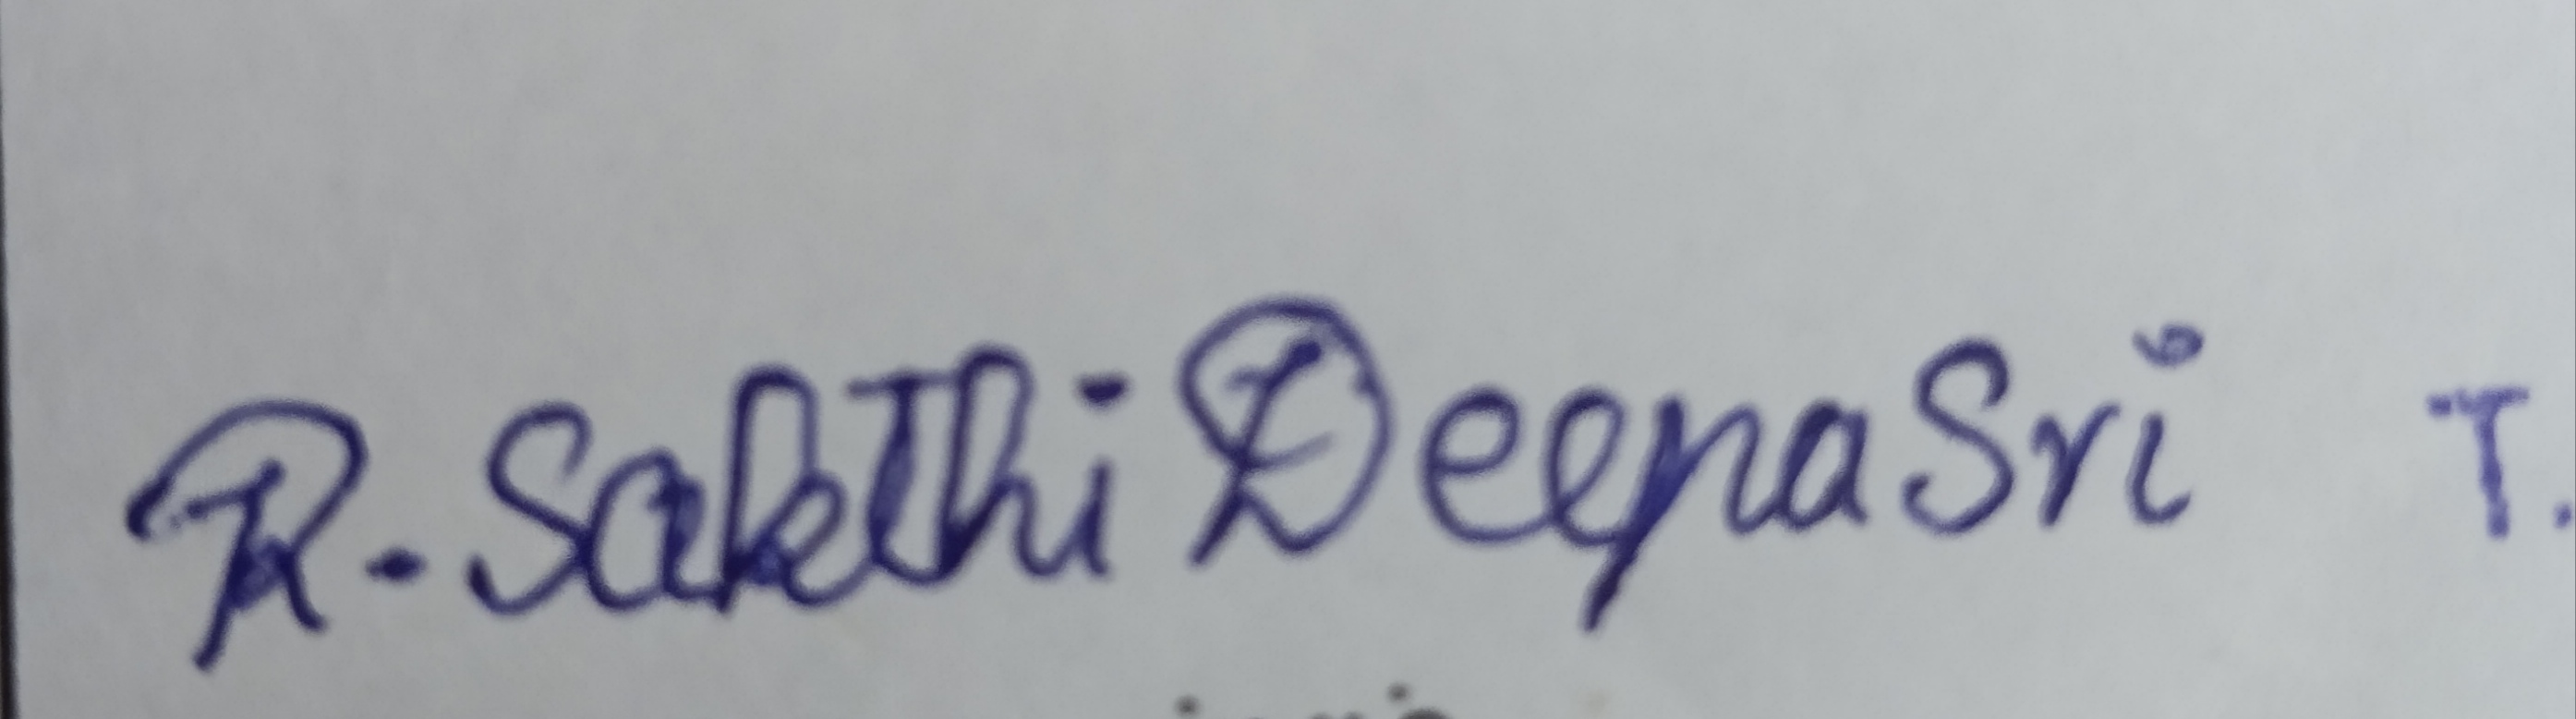 R. Sakthi DeepaSri T.